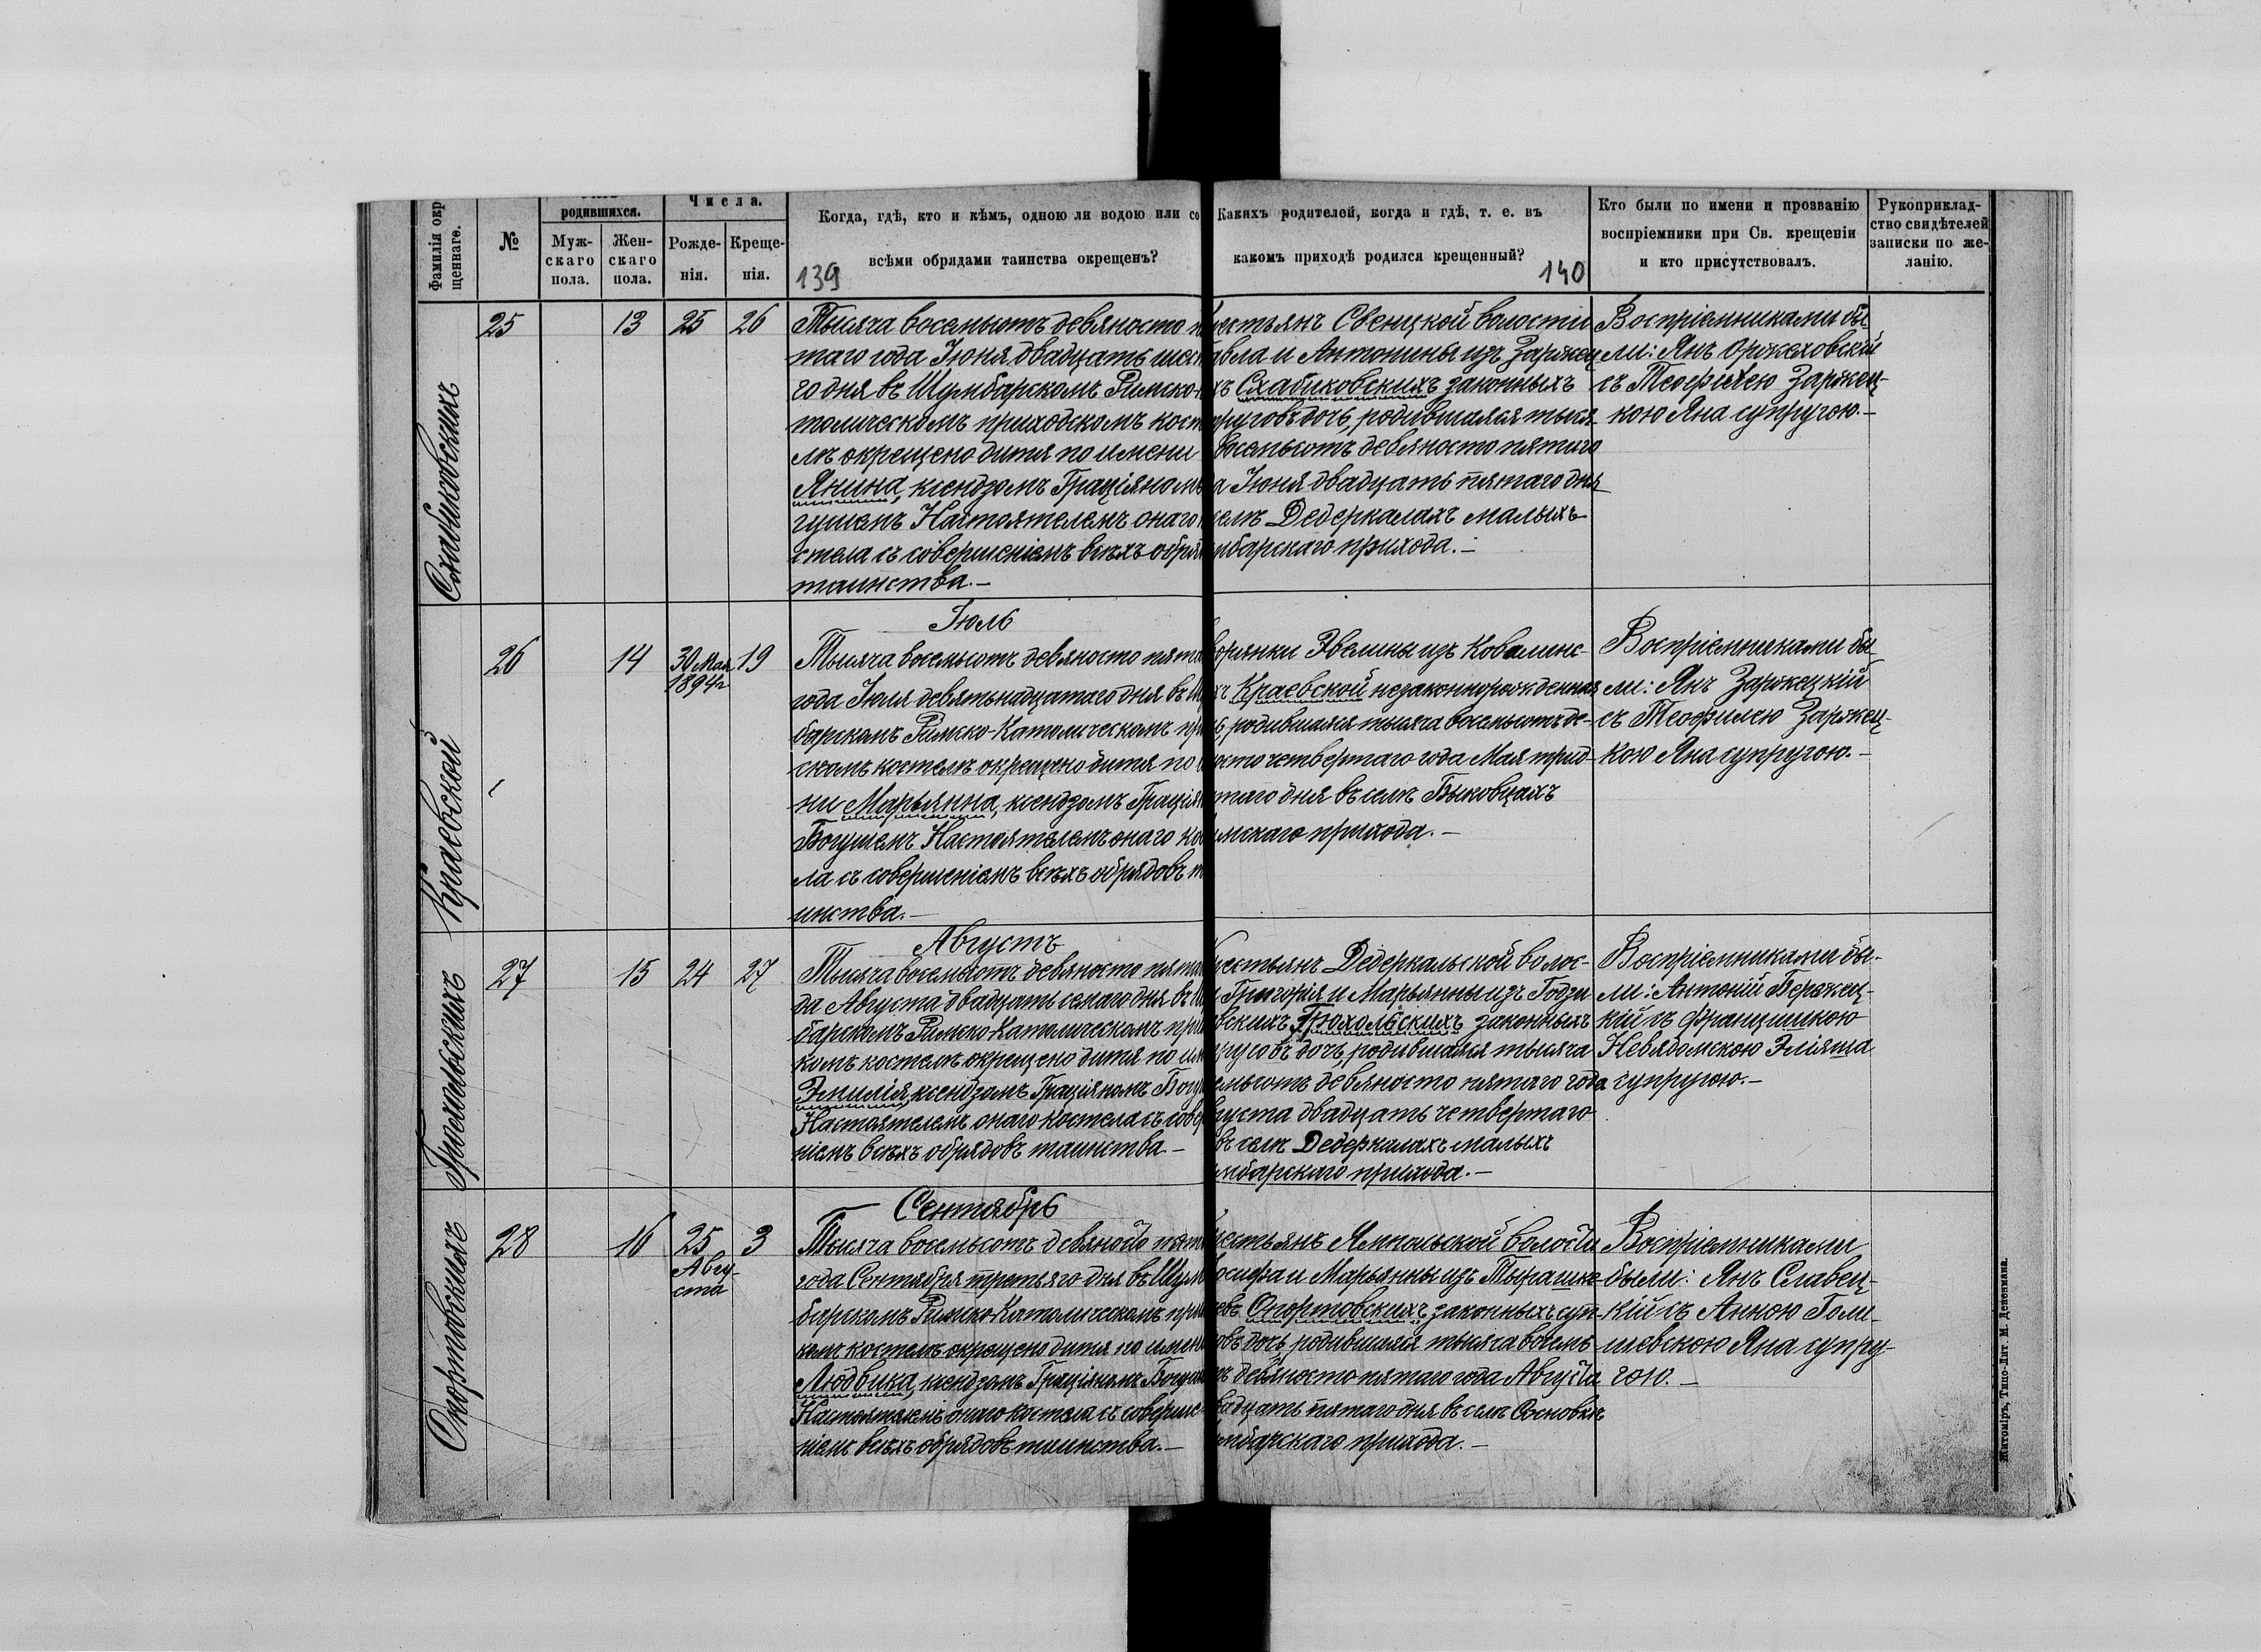 Фамилія окр
щеннаго.
№
родившихся.
Муж-
скаго
пола.
Жен-
скаго
пола.
Числа.
Рожде-
нія.
Креще-
нія.
Когда, гдѣ, кто и кѣмъ, одною ли водою или со
всѣми обрядами таинства окрещенъ?
139
Какихъ родителей, когда и гдѣ, т. е. въ
какомъ приходѣ родился крещенный?
140
Кто были по имени и прозванію
воспріемники при Св. крещеніи
и кто присутствовалъ.
Рукоприклад-
ство свидѣтелей
записки по же-
ланію.
Слабиковскихъ
25
13
25
26
Тысяча восемьсотъ девяносто п
таго года Іюня двадцать шес
го дня въ Шумбарскомъ Римско-
толическомъ приходскомъ кост
лѣ окрещено дитя по имени
Янина, ксендзомъ Граціяномъ
гушемъ Настоятелемъ онаго
стела съ совершеніемъ всѣхъ обряд
таинства.—
рестьянъ Свенцкой волости
авла и Антонины изъ Заржец
хъ Слабиковскихъ законныхъ
пруговъ дочь, родившаяся тыся-
восемьсотъ девяносто пятаго
а Іюня двадцать пятаго дня
селѣ Дедеркалахъ малыхъ
мбарскаго прихода.—
Воспріемниками бы-
ли: Янъ Оржеховскій
съ Теофилею Заржец-
кою Яна супругою.—
Краевской
Іюль
26
14
30 Мая
1894 г
19
Тысяча восемьсотъ девяносто пята
года Іюля девятьнадцатаго дня въ Шу
барскомъ Римско-Католическомъ при
скомъ костелѣ окрещено дитя по и
ни Марьянна, ксендзомъ Граціян
Богушемъ Настоятелемъ онаго кос
ла съ совершеніемъ всѣхъ обрядовъ т
инства.—
ворянки Эвелины изъ Ковалинс-
хъ Краевской незаконнорожденная
ь, родившаяся тысяча восемьсотъ де-
осто четвертаго года Мая трид-
таго дня въ селѣ Быковцахъ
мскаго прихода.—
Воспріемниками бы-
ли: Янъ Заржецкій
съ Теофилею Заржец-
кою Яна супругою.—
Грохольскихъ
Августъ
27
15
24
27
Тысяча восемьсотъ девяносто пята
да Августа двадцать семаго дня въ Шу
барскомъ Римско Католическомъ при
комъ костелѣ окрещено дитя по им
Эмилія, ксендзомъ Граціяномъ Богу
Настоятелемъ онаго костела съ совер
ніемъ всѣхъ обрядовъ таинства.—
рестьянъ Дедеркальской волос-
и Григорія и Марьянны изъ Годзи
вскихъ Грохольскихъ законныхъ
пруговъ дочь, родившаяся тысяча
емьсотъ девяносто пятаго года
густа двадцать четвертаго
въ селѣ Дедеркалахъ малыхъ
мбарскаго прихода.—
Воспріемниками бы-
ли: Антоній Бержец-
кій съ Францишкою
Невядомскою Эліяша
супругою.—
Опортовскихъ
Сентябрь
28
16
25
Авгу-
ста
3
Тысяча восемьсотъ девяносто пята
года Сентября третьяго дня въ Шум
барскомъ Римско Католическомъ при
комъ костелѣ окрещено дитя по имени
Людвика, ксендзомъ Граціяномъ Богуше
Настоятелемъ онаго костела съ соверше-
ніемъ всѣхъ обрядовъ таинства.—
рестьянъ Ямпольской волости
осифа и Марьянны изъ Тырашке-
евъ Опортовскихъ законныхъ суп-
овъ дочь, родившаяся тысяча восемь-
тъ девяносто пятаго года Августа
вадцать пятаго дня въ селѣ Сосновкѣ
мбарскаго прихода.—
Воспріемниками
были: Янъ Славец-
кій съ Анною Голи-
шевскою Яна супру-
гою.—
Житоміръ, Типо-Лит. М. Дененмана.